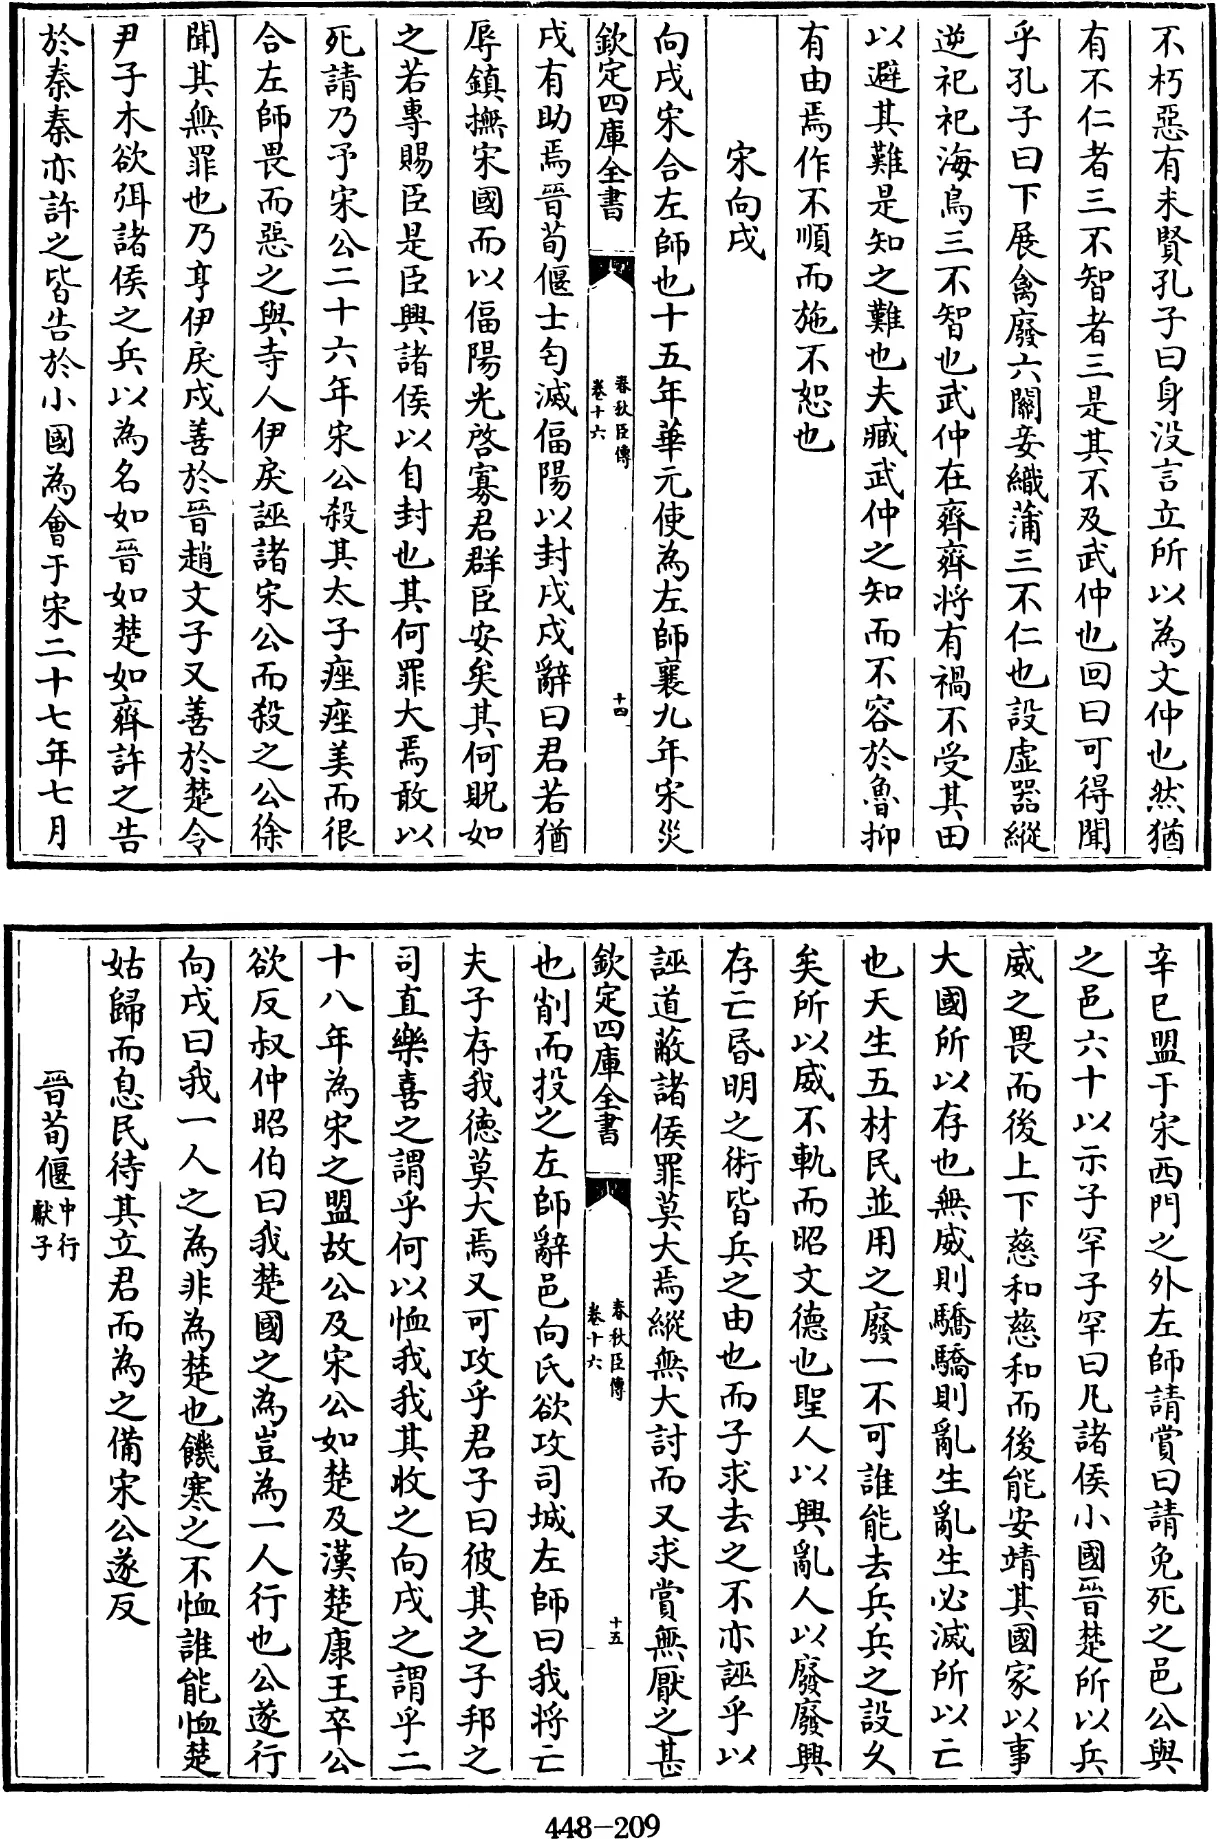 不朽惡有未賢孔子曰身没言立所以為文仲也然猶
有不仁者三不智者三是其不及武仲也回曰可得聞
乎孔子曰下展禽廢六關妾織蒲三不仁也設虛器縱
逆祀祀海鳥三不智也武仲在齊齊將有禍不受其田
以避其難是知之難也夫臧武仲之知而不容於魯抑
有由焉作不順而施不恕也
宋向戌
向戌宋合左師也十五年華元使為左師襄九年宋災
欽定四庫全書
春秋臣傳
卷十六
十四
戌有助焉晉荀偃士匄滅偪陽以封戌戌辭曰君若猶
辱鎮撫宋國而以偪陽光啓寡君群臣安矣其何貺如
之若專賜臣是臣興諸侯以自封也其何罪大焉敢以
死請乃予宋公二十六年宋公殺其太子痤痤美而很
合左師畏而惡之與寺人伊戾誣諸宋公而殺之公徐
聞其無罪也乃亨伊戾戌善於晉趙文子又善於楚令
尹子木欲弭諸侯之兵以為名如晉如楚如齊許之告
於秦秦亦許之皆告於小國為會于宋二十七年七月
辛巳盟于宋西門之外左師請賞曰請免死之邑公與
之邑六十以示子罕子罕曰凡諸侯小國晉楚所以兵
威之畏而後上下慈和慈和而後能安靖其國家以事
大國所以存也無威則驕驕則亂生亂生必滅所以亡
也天生五材民並用之廢一不可誰能去兵兵之設久
矣所以威不軌而昭文德也聖人以興亂人以廢廢興
存亡昏明之術皆兵之由也而子求去之不亦誣乎以
誣道蔽諸侯罪莫大焉縱無大討而又求賞無厭之甚
欽定四庫全書
春秋臣傳
卷十六
十五
也削而投之左師辭邑向氏欲攻司城左師曰我將亡
夫子存我德莫大焉又可攻乎君子曰彼其之子邦之
司直樂喜之謂乎何以恤我我其收之向戌之謂乎二
十八年為宋之盟故公及宋公如楚及漢楚康王卒公
欲反叔仲昭伯曰我楚國之為豈為一人行也公遂行
向戌曰我一人之為非為楚也饑寒之不恤誰能恤楚
姑歸而息民待其立君而為之備宋公遂反
晉荀偃中行獻子
448-209